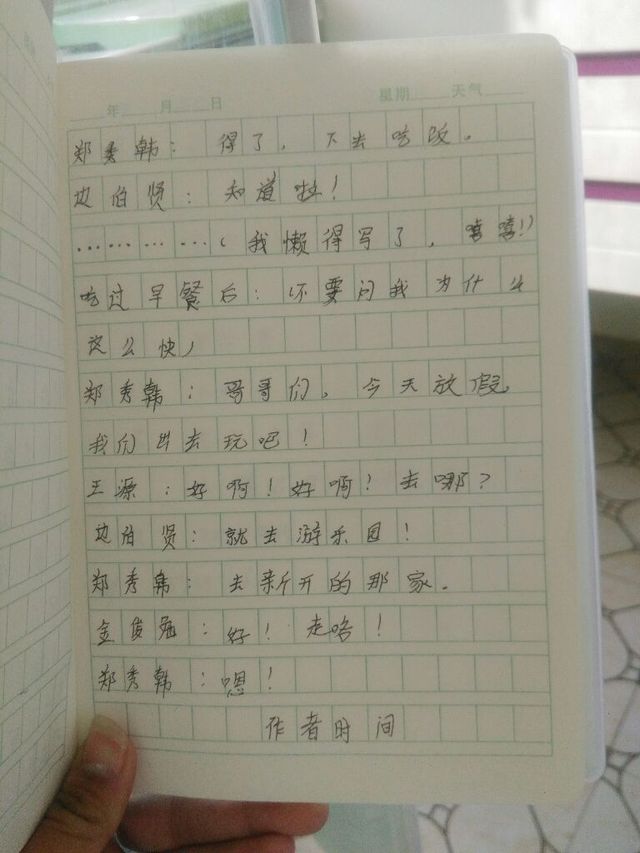 年 月 日 星期 天气
郑秀韩：得了，下去吃饭。
边伯贤：知道啦！
…………（我懒得写了，嘻嘻！）
吃过早餐后：（不要问我为什么
这么快）
郑秀韩：哥哥们，今天放假，
我们出去玩吧！
王源：好啊！好啊！去哪？
边伯贤：就去游乐园！
郑秀韩：去新开的那家。
金俊勉：好！走咯！
郑秀韩：嗯！
作者时间